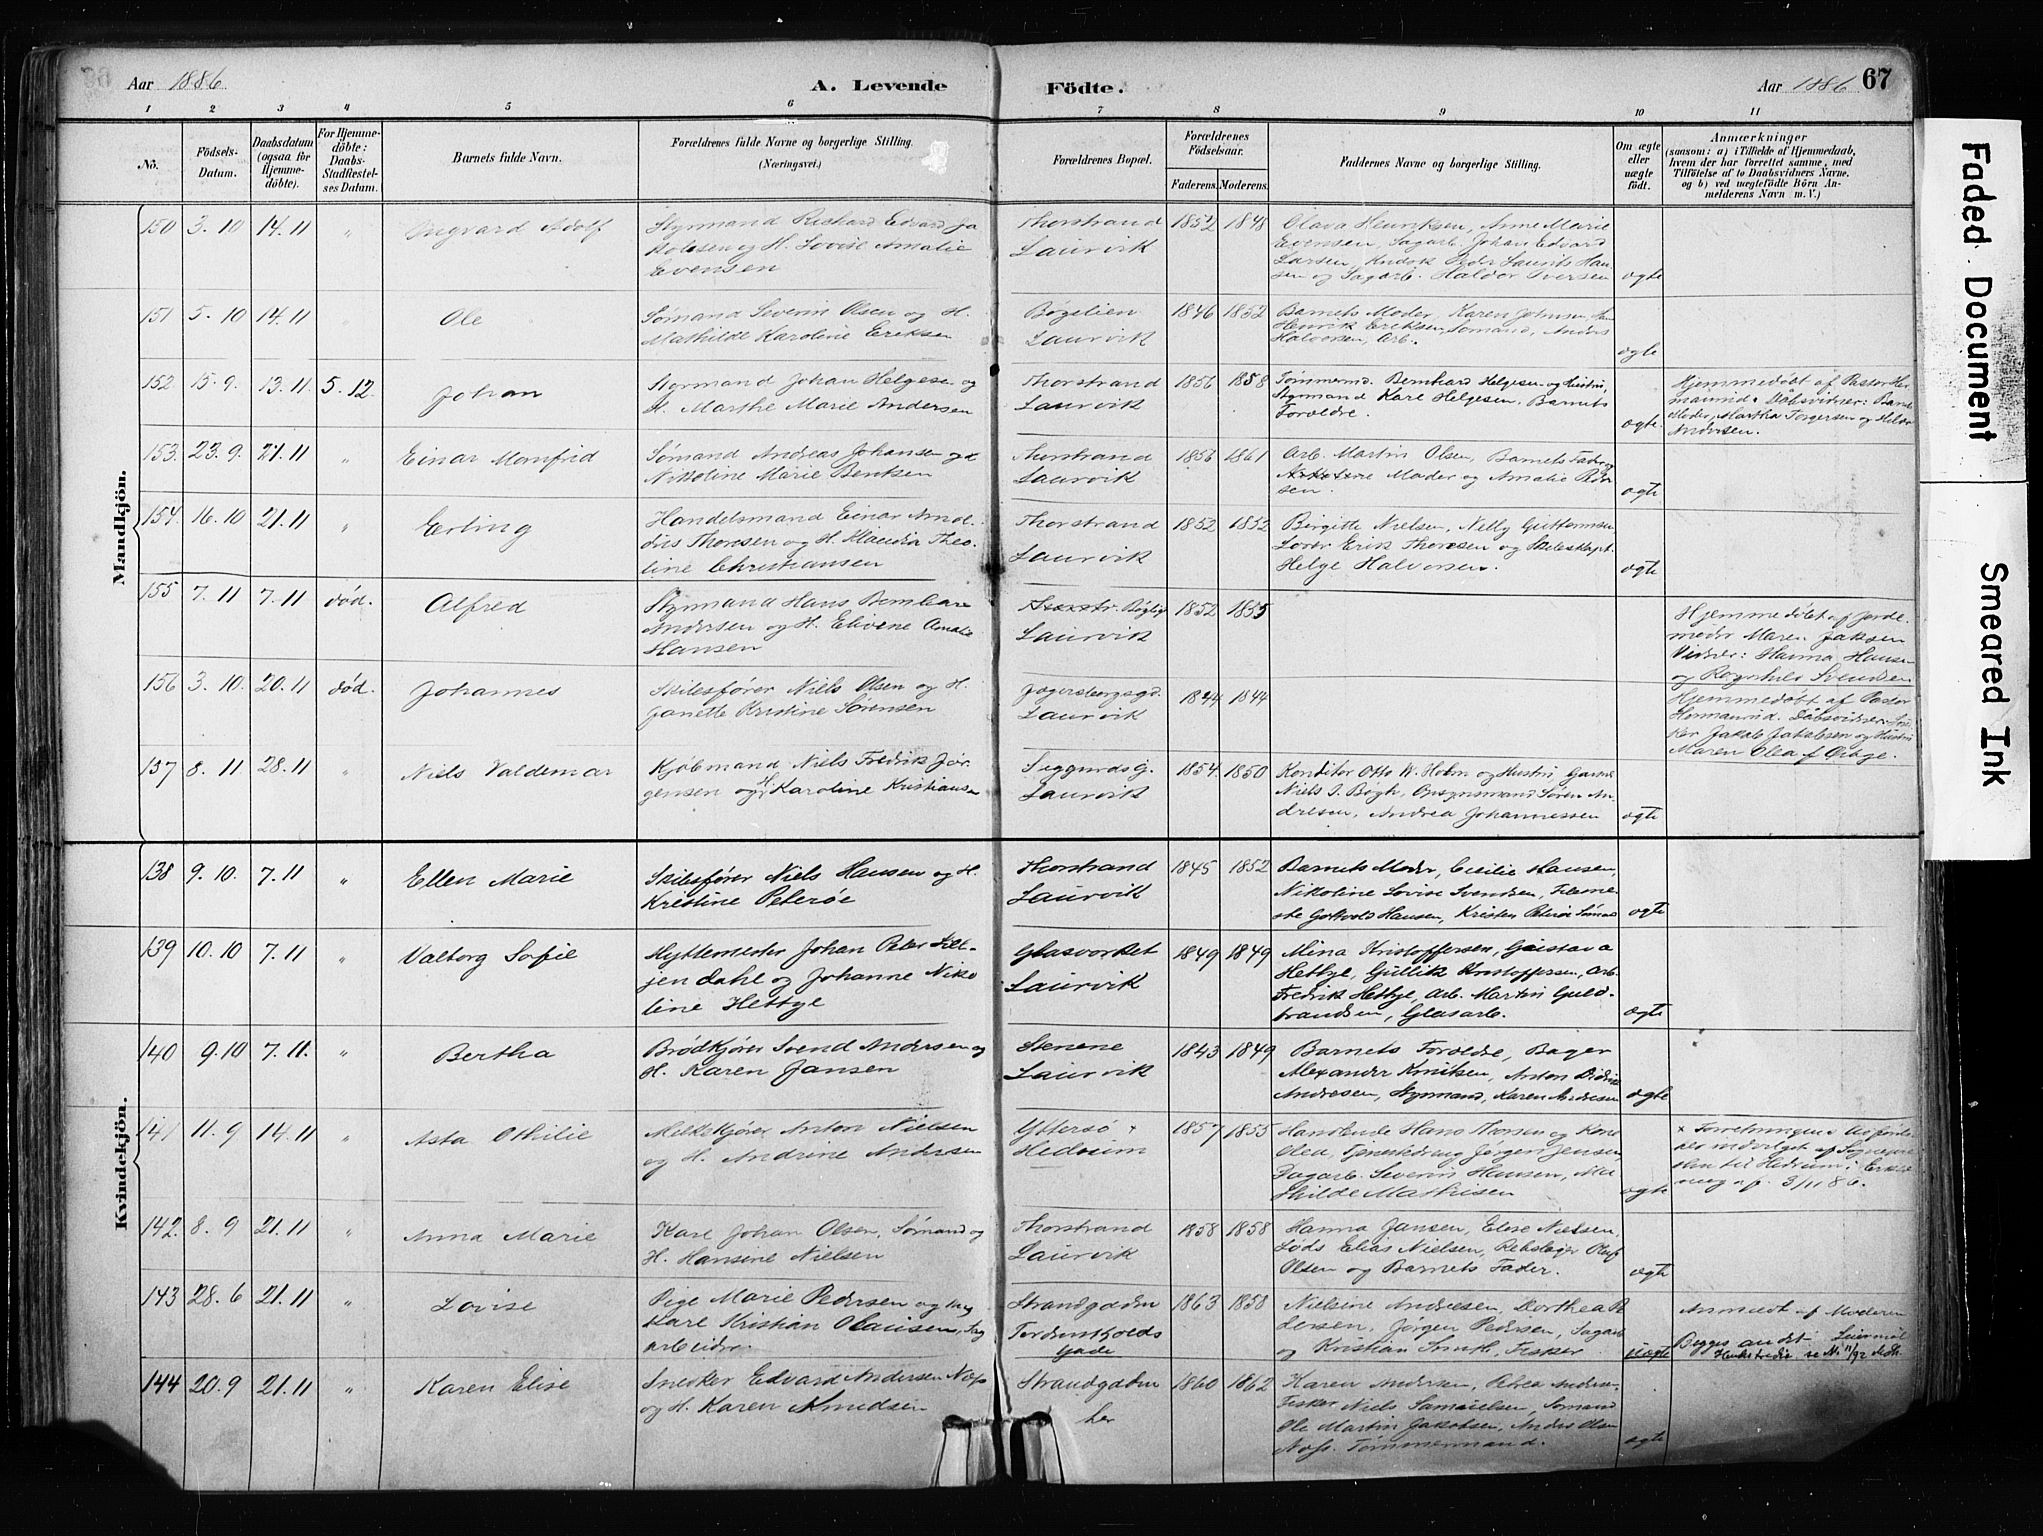 Aar 1886
A. Levende Födte.
Aar 1886 67
1 2 3 4 5 6 7 8 9 10 11
No. Födsels-Datum. Daabsdatum (ogsaa for Hjemmedöbte). For Hjemmedöbte: Daabs-Stadfæstelses Datum. Barnets fulde Navn. Forældrenes fulde Navne og borgerlige Stilling. (Næringsvei.) Forældrenes Bopæl. Forældrenes Födselsaar. Faderens. Moderens. Faddernes Navne og borgerlige Stilling. Om ægte eller uægte födt. Anmærkninger (saasom: a) i Tilfælde af Hjemmedaab, hvem der har forrettet samme, med Tilföielse af to Daabsvidners Navne. og b) ved uægtefödte Börn Anmelderens Navn m. V.)
Mandkjön.
150 3.10 14.11 " Ingvard Adolf Styrmand Richard Edvard Ja
kobsen og H. Lovise Amalie
Evensen
Thorstrand
Laurvik
1852 1848
Olava Henriksen, Anne Marie
Evensen, Sagarb. Johan Edvard
Larsen, Peder Laurits Han
sen og Sagarb. Haldor Iversen
ægte
151 5.10 14.11 " Ole Sømand Severin Olsen og H.
Mathilde Karoline Eriksen
Bøgelien
Laurvik
1846 1852
Barnets Moder, Karen Johnsen,
Henrik Eriksen, Sømand, Anders
Halvorsen, Arb.
ægte
152 15.9. 13.11. 5.12. Johan Styrmand Johan Helgesen og
H. Marthe Marie Andersen
Thorstrand
Laurvik
1856 1858
Tømmermd. Bernhard Helgesen og Hustru,
Styrmand Karl Helgesen. Barnets
Forældre.
ægte.
Hjemmedøbt af Pastor Her
manrud. Døbsvidner: Barnets
Moder, Martha Torgersen og
Andersen.
153. 23.9. 21.11 " Einar Monfrid Sømand Andreas Johansen og H
Nikoline Marie Bentsen
Thorstrand
Laurvik
1856 1861
Arb. Martin Olsen, Barnets Fader og
Moder og Amalie Peder
sen.
ægte
154. 16.10 21.11 " Erling Handelsmand Einar
Thoresen og H. Klaudia Theo-
line Christiansen
Thorstrand
Laurvik
1852 1852
Birgitte Nielsen, Nelly Guttormsen
Erik Thoresen og Skibskapt.
Helge Halvorsen.
ægte
155 7.11 7.11 død. Alfred Styrmand Hans Bernhard
Andersen og H. Elvene Amalie
Hansen
Bøglig
Laurvik
1852 1855
Hjemmedøbt af Jorde-
moder Maren Jaksen
Vidner: Hanna Hansen
og Ragnhild Svendsen
156 3.10. 20.11 død. Johannes Skibsfører Niels Olsen og H.
Janette Kristine Sørensen
Jegersborgsgd.
Laurvik
1844 1844
Hjemmedøbt af Pastor
Hermanrud. Døbsvidner: Snee
ker Jakob Jakobsen og Hustru
Maren Olea f.
157 8.11 28.11 " Niels Valdemar Kjøbmand Niels Fredrik Jør
gensen og H. Karoline Kristiansen
Siggurds G.
Laurvik
1854. 1850
Konditor Otto W. Holm og Hustru,
Niels J. Bøgh, Opsynsmand Søren An
dresen, Andrea Johannessen
ægte
Kvindekjön.
138 9.10. 7.11 " Ellen Marie Skibsfører Niels Hansen og H.
Kristine Peterøe
Thorstrand
Laurvik
1845 1852
Barnets Moder, Cecilie Hansen,
Nikoline Lovise Svendsen,
Hansen, Kristen Peterøe Sømd
ægte
139 10.10 7.11 " Valborg Sofie Hyttemester Johan Peter Lil-
jendahl og Johanne Niko
line Hetbye
Glasværket
Laurvik
1849 1849
Mina Kristoffersen, Gustava
Hetbye, Gullik Kristoffersen, Arb.
Fredrik Hetbye, Arb. Martin Guld-
brandsen, Glasarb.
ægte
140 9.10 7.11. " Bertha Brødkjører Svend Andersen og
H. Karen Jansen
Stenene
Laurvik
1843 1849
Barnets Forældre, Bager
Alexander Knutsen, Anton Didrik
Andresen, Styrmand, Karen Andresen
ægte
141 11.9 14.11 " Asta Othilie Melkekjører Anton Nielsen
og H. Andrine Andersen
Yttersø +
Hedrum
1857 1855
Handlende Hans Thorsen og Kone
Olea, Tjenestedreng Jørgen Jensen,
Dagarb. Severin Hansen, Ma
thilde Mathisen
ægte
142. 8.9 21.11 " Anna Marie Karl Johan Olsen, Sømand og
H. Hansine Nielsen
Thorstrand
Laurvik
1858 1858
Hanna Jansen, Elise Nielsen,
Lods Elias Nielsen, Rebslager Oluf
Olsen og Barnets Fader.
ægte
143 28.6 21.11 " Lovise Pige Marie Pedersen og Ung
Karl Kristian Olausen, Sag
arbeider.
Strandgaden
Tordenskjolds
Gade
1863 1858
Nielsine Andresen, Dorthea Pe
dersen, Jørgen Pedersen, Sagarb
og Kristian Smith, Fisker.
uægte
Anmeldt af Moderen
Begges andet Leiermål
144 20.9 21.11 " Karen Elise Snedker Edvard Andersen
og H. Karen Knudsen
Strandgaden
her
1860 1862
Karen Andersen, Petrea Andersen,
Fisker Niels Samuelsen, Sømand
Ole Martin Jakobsen, Anders Olsen
Tømmermand.
ægte
Faded Document
Smeared Ink